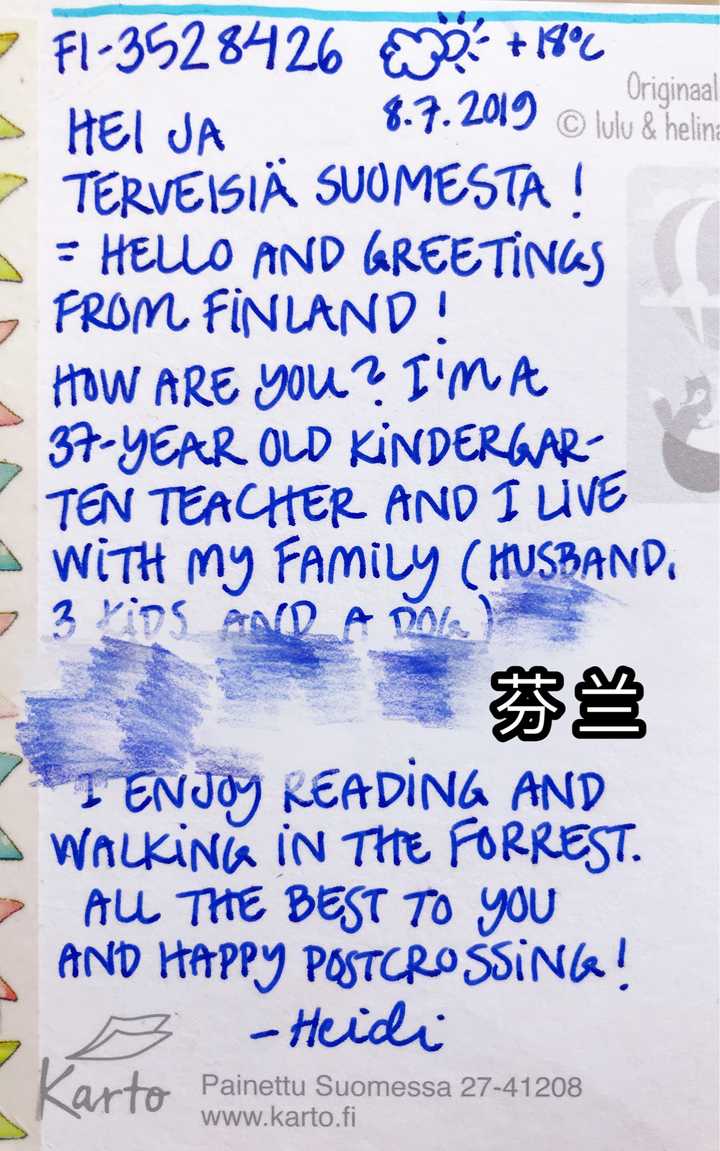 FI-3528426 +18°C
8.7.2019
Originaal
© lulu & helina
HEI JA
TERVEISIÄ SUOMESTA!
= HELLO AND GREETINGS
FROM FINLAND!
HOW ARE YOU? I'M A
37-YEAR OLD KINDERGAR-
TEN TEACHER AND I LIVE
WITH MY FAMILY (HUSBAND,
3 KIDS AND A DOG)
芬兰
I ENJOY READING AND
WALKING IN THE FORREST.
ALL THE BEST TO YOU
AND HAPPY POSTCROSSING!
- Heidi
Karto
Painettu Suomessa 27-41208
www.karto.fi